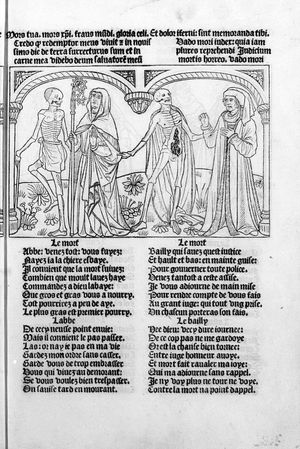 Mors tua. mors xp̄i. fraus mūdi. gloria celi. Et dolor iferni: sint memoranda tibi.
Credo q̄ redemptor meus viuit ⁊ in nouissi
simo die de terra surrecturus sum et in
carne mea videbo deum saluatorē meū
Uado mori iudex: quia iam
plures reprehendi Iudicium
mortis horreo. vado mori
Le mort
Abbe: venez tost: vous fuyez:
Nayez ia la chiere esbaye.
Il conuient que la mort suiuez:
Combien que moult lauez haye
Commandez a dieu labaye:
Que gros et gras vous a nourry.
Tost pourrirez a peu de aye.
Le plus gras est premier pourry.
Labbe
De cecy neusse point enuie:
Mais il conuient le pas passer.
Las: or nay ie pas en ma vie
Garde mon ordre sans casser.
Garde vous de trop embrasser
Vous qui viuez au demorant:
Se vous voulez bien trespasser.
On sauise tard en mourant.
Le mort
Bailly qui sauez quest iustice
Et hault et bas: en mainte guise:
Pour gouuerner toute police.
Venez tantost a ceste assise.
Je vous adiourne de main mise
Pour rendre compte de vous fais
Au grant iuge: qui tout vng prise.
Un chascun portera son fais.
Le bailly
Hee dieu: vecy dure iournee:
De ce cop pas ne me gardoye
Or est la chanse bien tornee:
Entre iuge honneur auoye.
Et mort fait raualer ma ioye:
Qui ma adiourne sans rappel.
Je ny voy plus ne tour ne voye.
Contre la mort na point dappel.